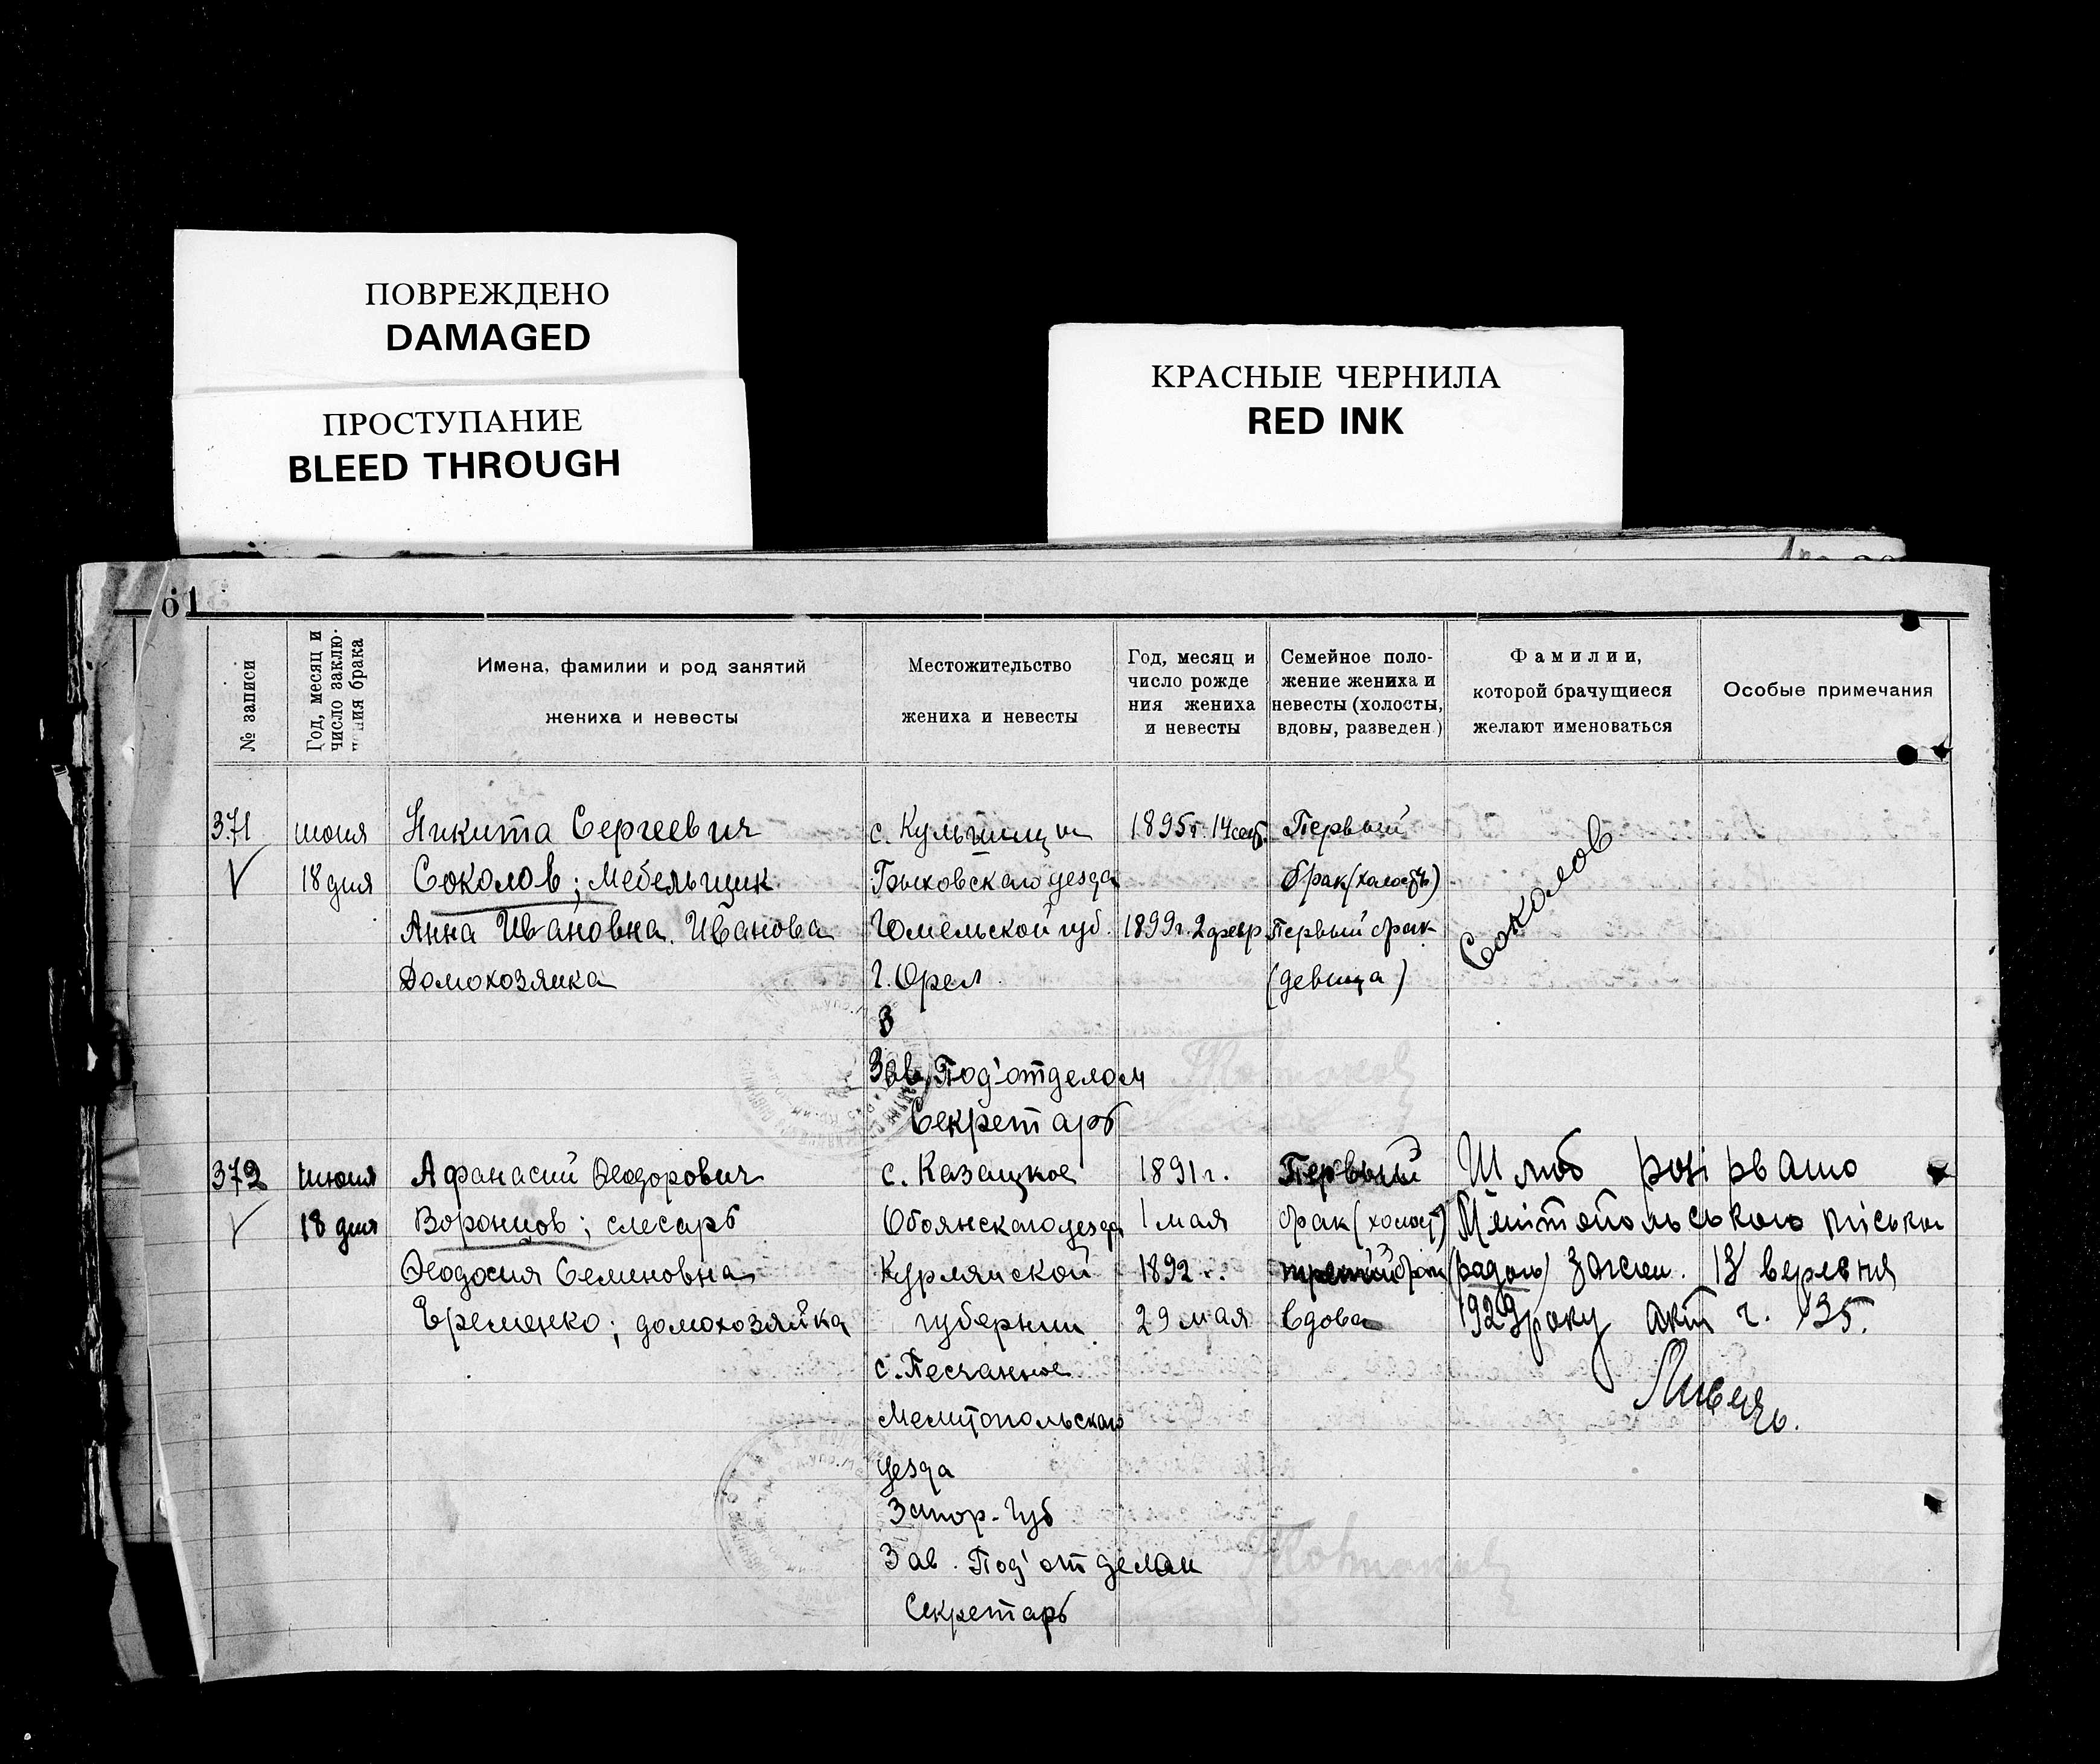 ПОВРЕЖДЕНО
DAMAGED
ПРОСТУПАНИЕ
BLEED THROUGH
КРАСНЫЕ ЧЕРНИЛА
RED INK
61
№ записи
Год, месяц и
число заклю-
чения брака
Имена, фамилии и род занятий
жениха и невесты
Местожительство
жениха и невесты
Год, месяц и
число рожде
ния жениха
и невесты
Семейное поло-
жение жениха и
невесты (холосты,
вдовы, разведен.)
Фамилии,
которой брачущиеся
желают именоваться
Особые примечания
371 июня Никита Сергеевич с. 1895 г. 14 сент. Первый
18 дня Соколов; Мебельщик Быховского уезда брак (холость)
Анна Ивановна Иванова Гомельской губ. 1899 г. 2 февр Первый брак
Домохозяика г. Орел (девица)
Соколов
З
Зав. Под'отделом
Секретарь
372 июня Афанасий Феодорович с. Казацкое 1891 г. Первый Шлюб розірвано
18 дня Воронцов; слесарь Обоянскаго уезда 1 мая брак (холост) Мелітопольською міською
Феодосия Семеновна Курлянской 1892 г. третий брак (радою) 13 вересня
Еременко; домохозяйка губернии 29 мая вдова 1929 року акт ч. 135.
с. Песчанное
Мелитопольскаго
уезда
Запор. Губ
Зав. Под'отделом
Секретарь